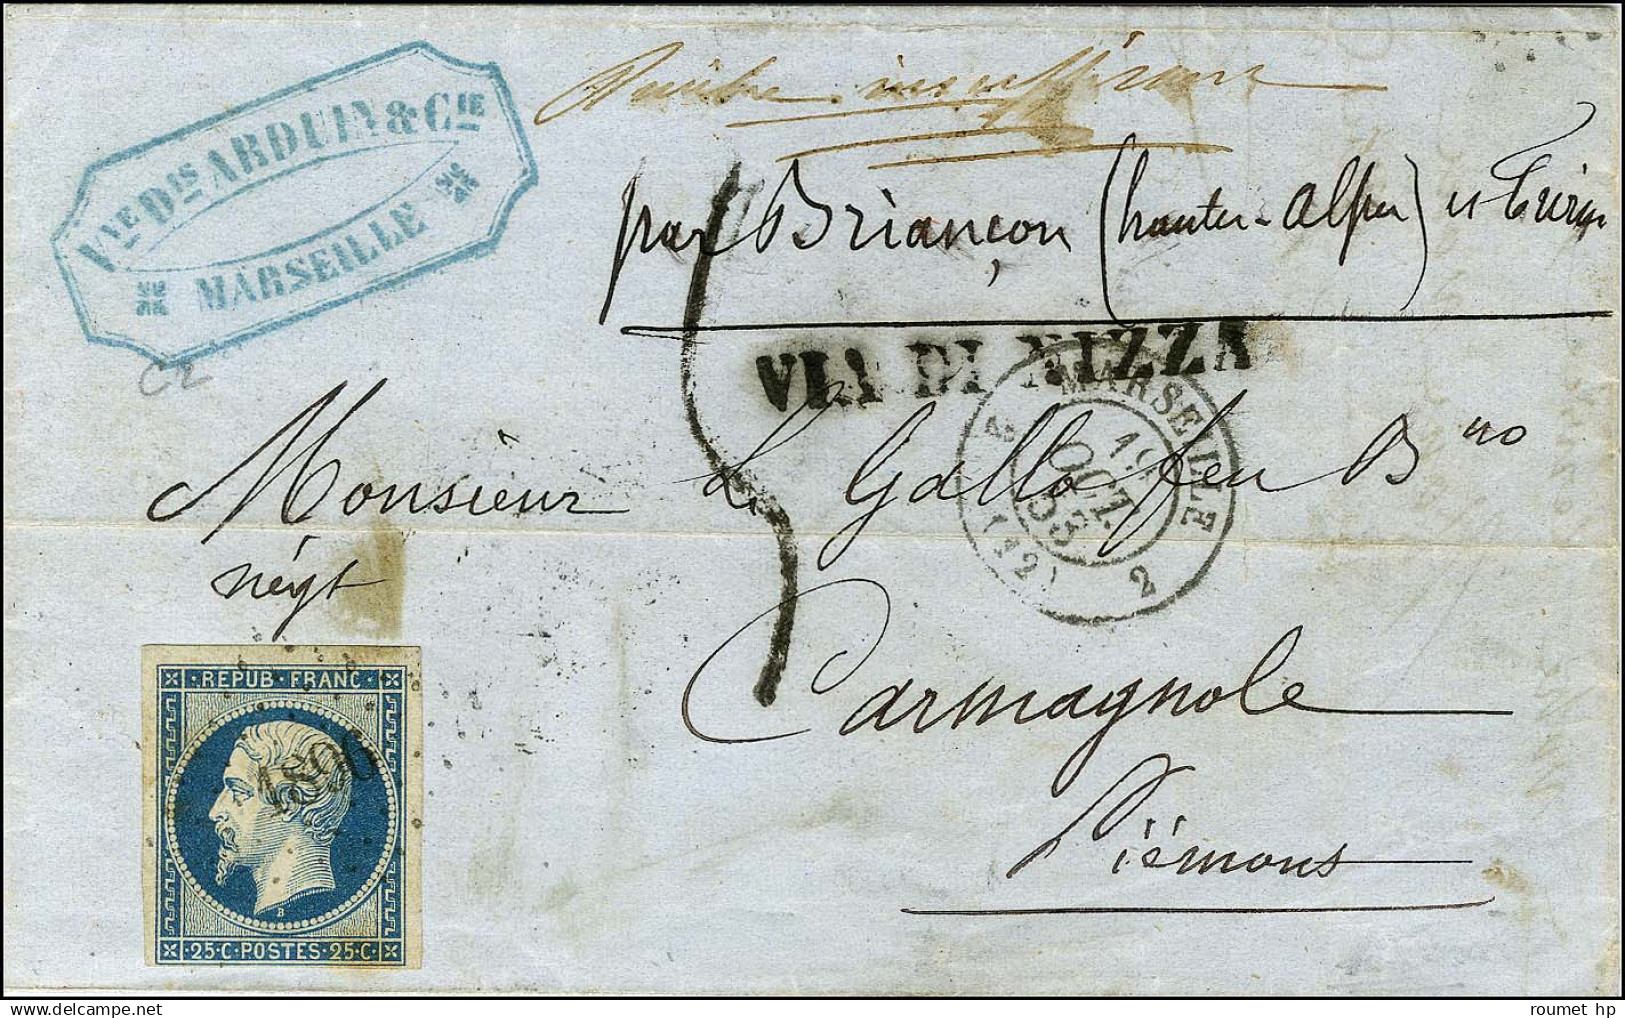 Vve Dis ARDUIN & CIE
MARSEILLE
Timbre insuffisant
par Briançon (hautes-alpes) et Turin
VIA DI NIZZA
MARSEILLE
OCT.
53
(12)
2
Monsieur L. Gallo feu Bno
négt
C2
Carmagnole
Piémont
REPUB FRANC
1896
B
25·C·POSTES·25·C
roumet hp